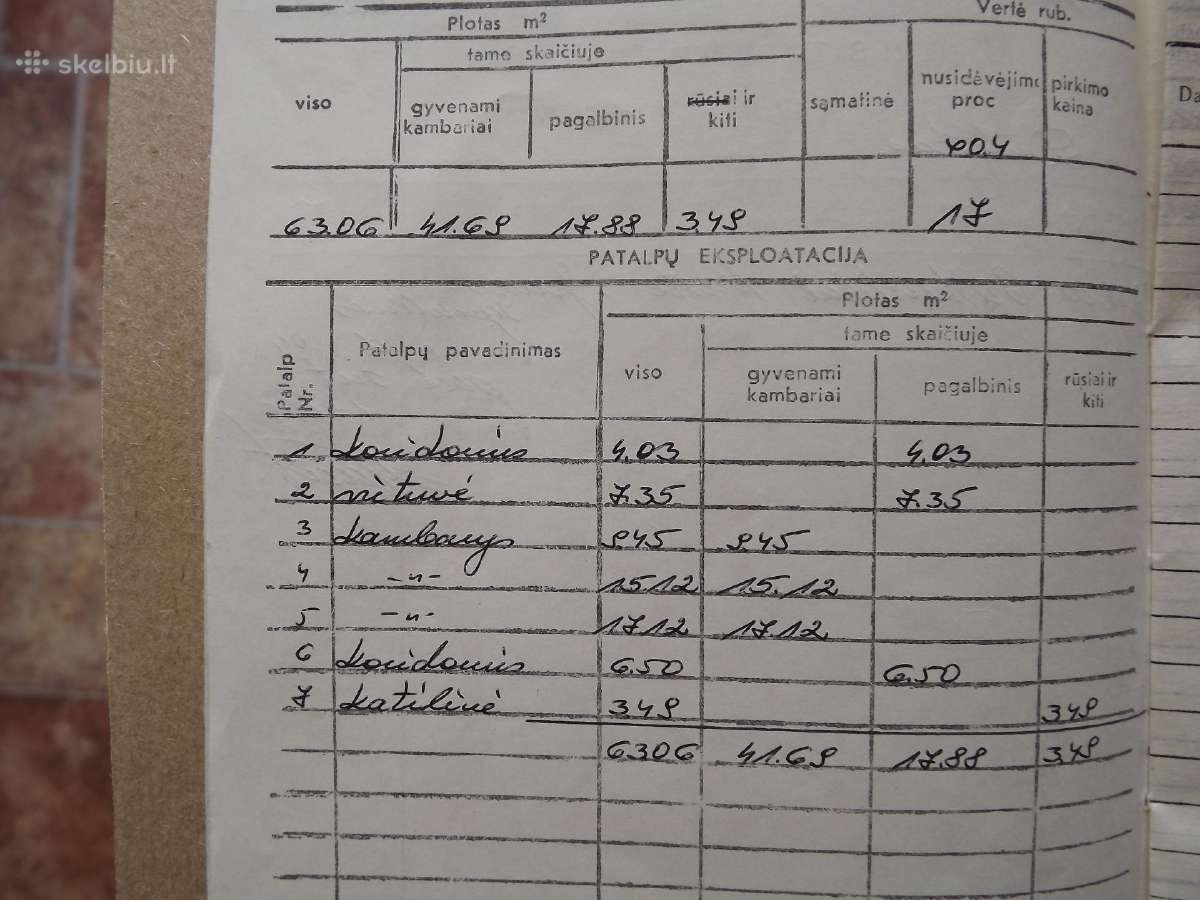 Plotas m² Vertė rub.
skelbiu.lt
tame skaičiuje
viso gyvenami kambariai pagalbinis rūsiai ir kiti sąmatinė nusidėvėjimo proc pirkimo kaina Da
63.06 41.69 17.88 3.49 17
PATALPŲ EKSPLOATACIJA
Plotas m²
tame skaičiuje
Patalp Nr. Patalpų pavadinimas viso gyvenami kambariai pagalbinis rūsiai ir kiti
1 koridorius 4.03 4.03
2 virtuvė 7.35 7.35
3 kambarys 9.45 9.45
4 –"– 15.12 15.12
5 –"– 17.12 17.12
6 koridorius 6.50 6.50
7 katilinė 3.49 3.49
63.06 41.69 17.88 3.49